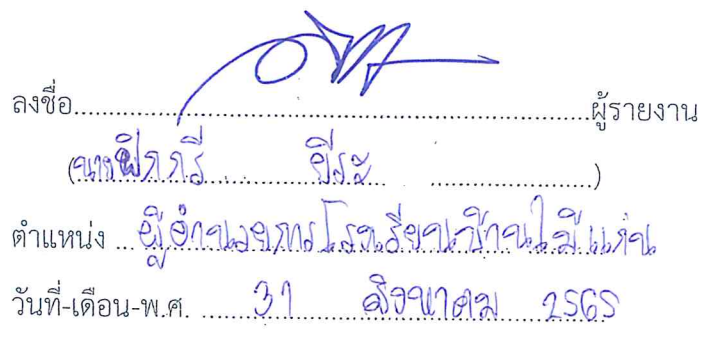 ลงชื่อ..........ผู้รายงาน
(นายฟิกกรี ยีระ)
ตำแหน่ง ผู้อำนวยการโรงเรียนบ้านไม้แก่น
วันที่-เดือน-พ.ศ. 31 สิงหาคม 2565